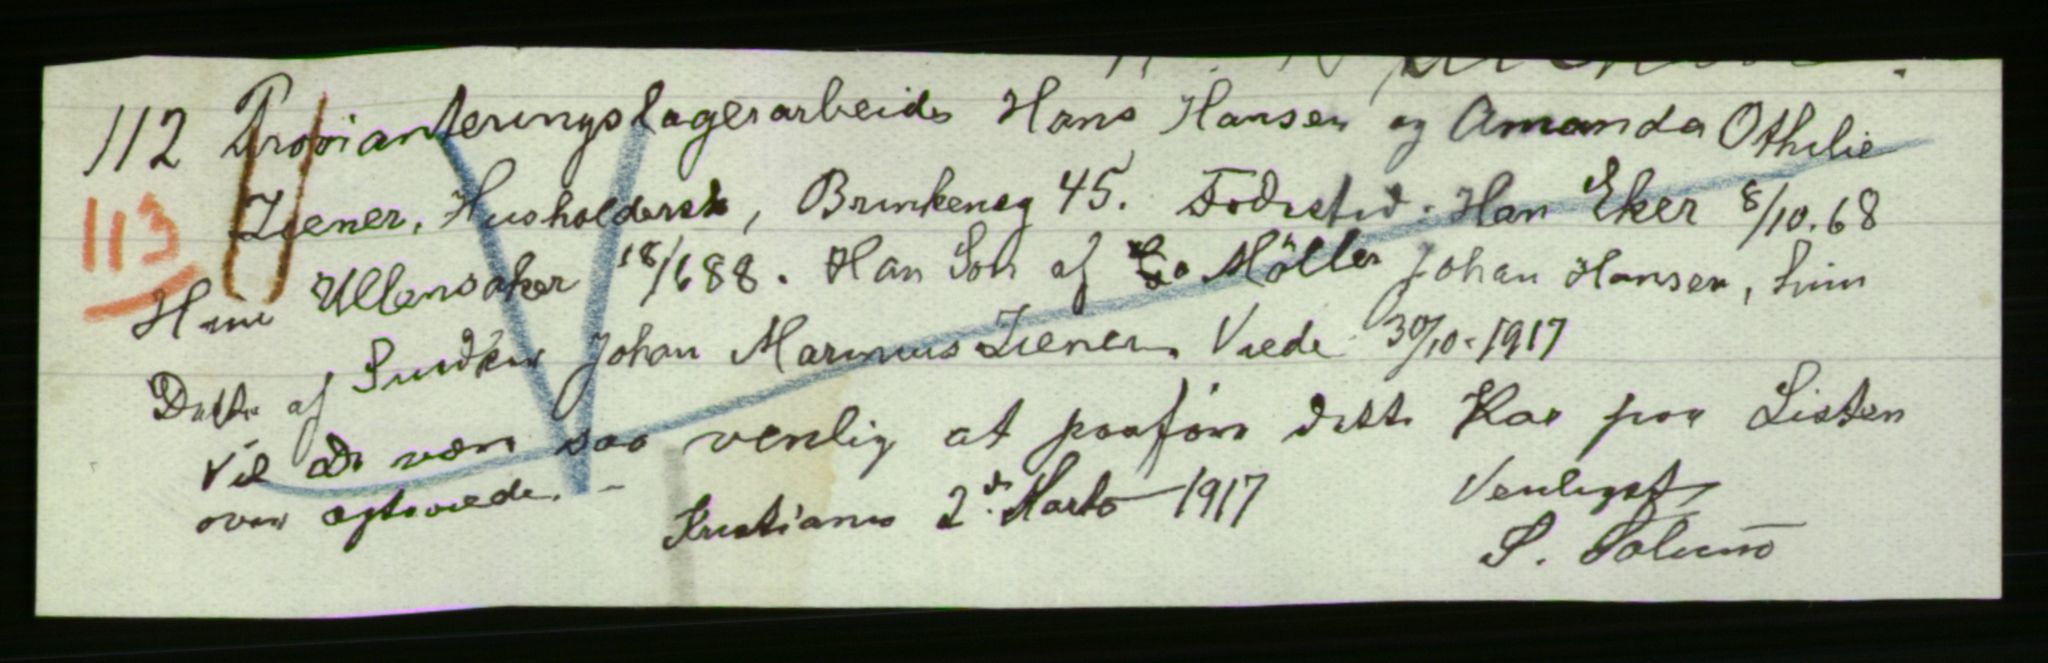 112 Provianteringslagerarbeider Hans Hansen og Amanda Othilie
113
Ziener, Husholdersk, Brinkensg 45. Fødested. Han Eker 8/10.68
Hun Ullensaker 18/6 88. Han Søn af Møller Johan Hansen, hun
Datter af Johan Marinius Ziener. Viede 30/10.1917
Vil De være saa venlig at paaføre dette Par paa Listen
over egteviede.
Kristiania 2. Marts 1917
Venligst
S. Solum